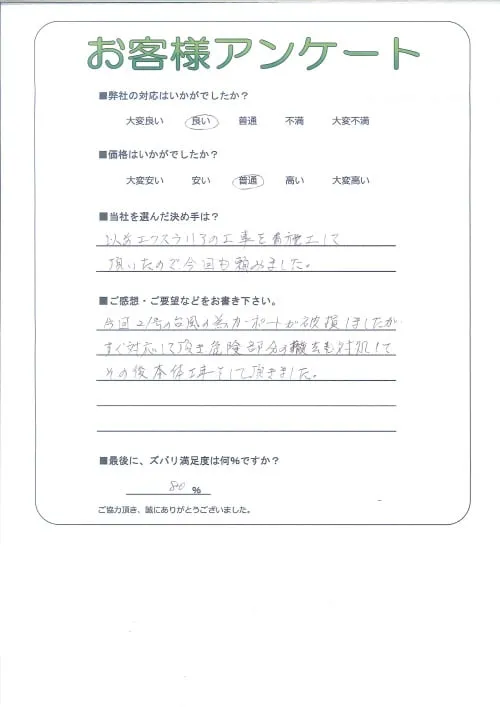 お客様アンケート
■弊社の対応はいかがでしたか？
大変良い 良い 普通 不満 大変不満
■価格はいかがでしたか？
大変安い 安い 普通 高い 大変高い
■当社を選んだ決め手は？
以前エクステリアの工事を施工して
頂いたので今回も頼みました。
■ご感想・ご要望などをお書き下さい。
今回21号の台風の為カーポートが破損しましたが
すぐ対応して頂き危険部分の撤去も対処して
その後本体工事をして頂きました。
■最後に、ズバリ満足度は何％ですか？
80 ％
ご協力頂き、誠にありがとうございました。